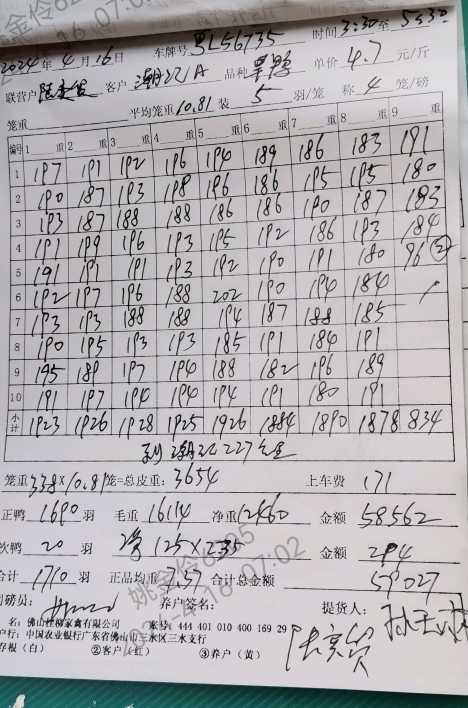 2024年4月16日 车牌号 粤L56735 时间3:30至5:30
联营户 客户 潮汉1A 品种 单价4.7元/斤
笼重 平均笼重10.81装5羽/笼 称4笼/磅
编号 1 重 2 重 3 重 4 重 5 重 6 重 7 重 8 重 9 重
1 197 191 192 196 194 189 186 183 191
2 190 187 193 198 196 186 195 195 180
3 193 187 188 188 186 186 190 187 183
4 191 199 196 193 195 192 186 193 184
5 191 191 191 193 192 190 191 180 96②
6 192 197 196 188 202 190 194 184
7 193 193 188 188 194 187 188 185
8 190 195 193 193 185 191 184 191
9 195 189 197 194 188 182 196 189
10 191 197 194 194 194 191 180 191
小计 1923 1926 1928 1925 1926 1884 1890 1878 834
到潮汉227
笼重338×10.81笼=总皮重:3654 上车费 171
正鸭1690羽 毛重16114 净重12460 金额58562
次鸭20羽 125×2.35 金额294
合计1710羽 正品均重7.37 合计总金额 59027
司磅员: 养户签名: 提货人:
名:佛山桂柳家禽有限公司 账号:444 401 010 400 169 29
户行:中国农业银行广东省佛山市三水区三水支行
存根(白) ②客户(红) ③养户(黄)
姚金伶6265
2024-4-16 07:02